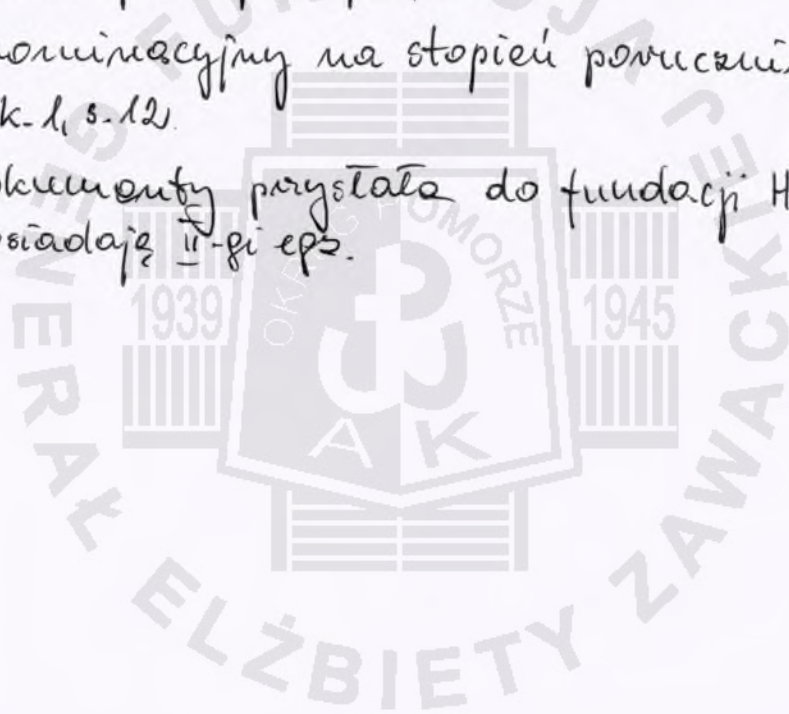 nominacyjny na stopień porucznik
k. 1, s. 12.
okumenty przysłała do fundacji H
siadają II-gi egz.
FUNDACJA
GENERAŁ ELŻBIETY ZAWACKIEJ
OKRĘG POMORZE
1939
1945
AK